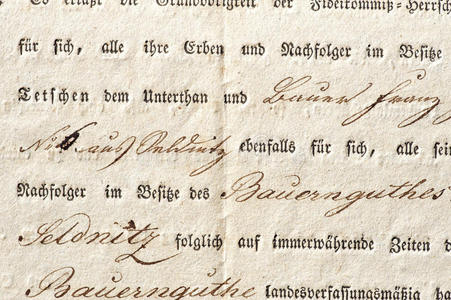 Es erläßt die Grundobrigkeit der Fideikommiß-Herrsch
für sich, alle ihre Erben und Nachfolger im Besitze
Tetschen dem Unterthan und Bauer Franz
aus Seldnitz ebenfalls für sich, alle sei
Nachfolger im Besitze des Bauernguthes
Seldnitz folglich auf immerwährende Zeiten d
Bauernguthe landesverfassungsmäßig ha